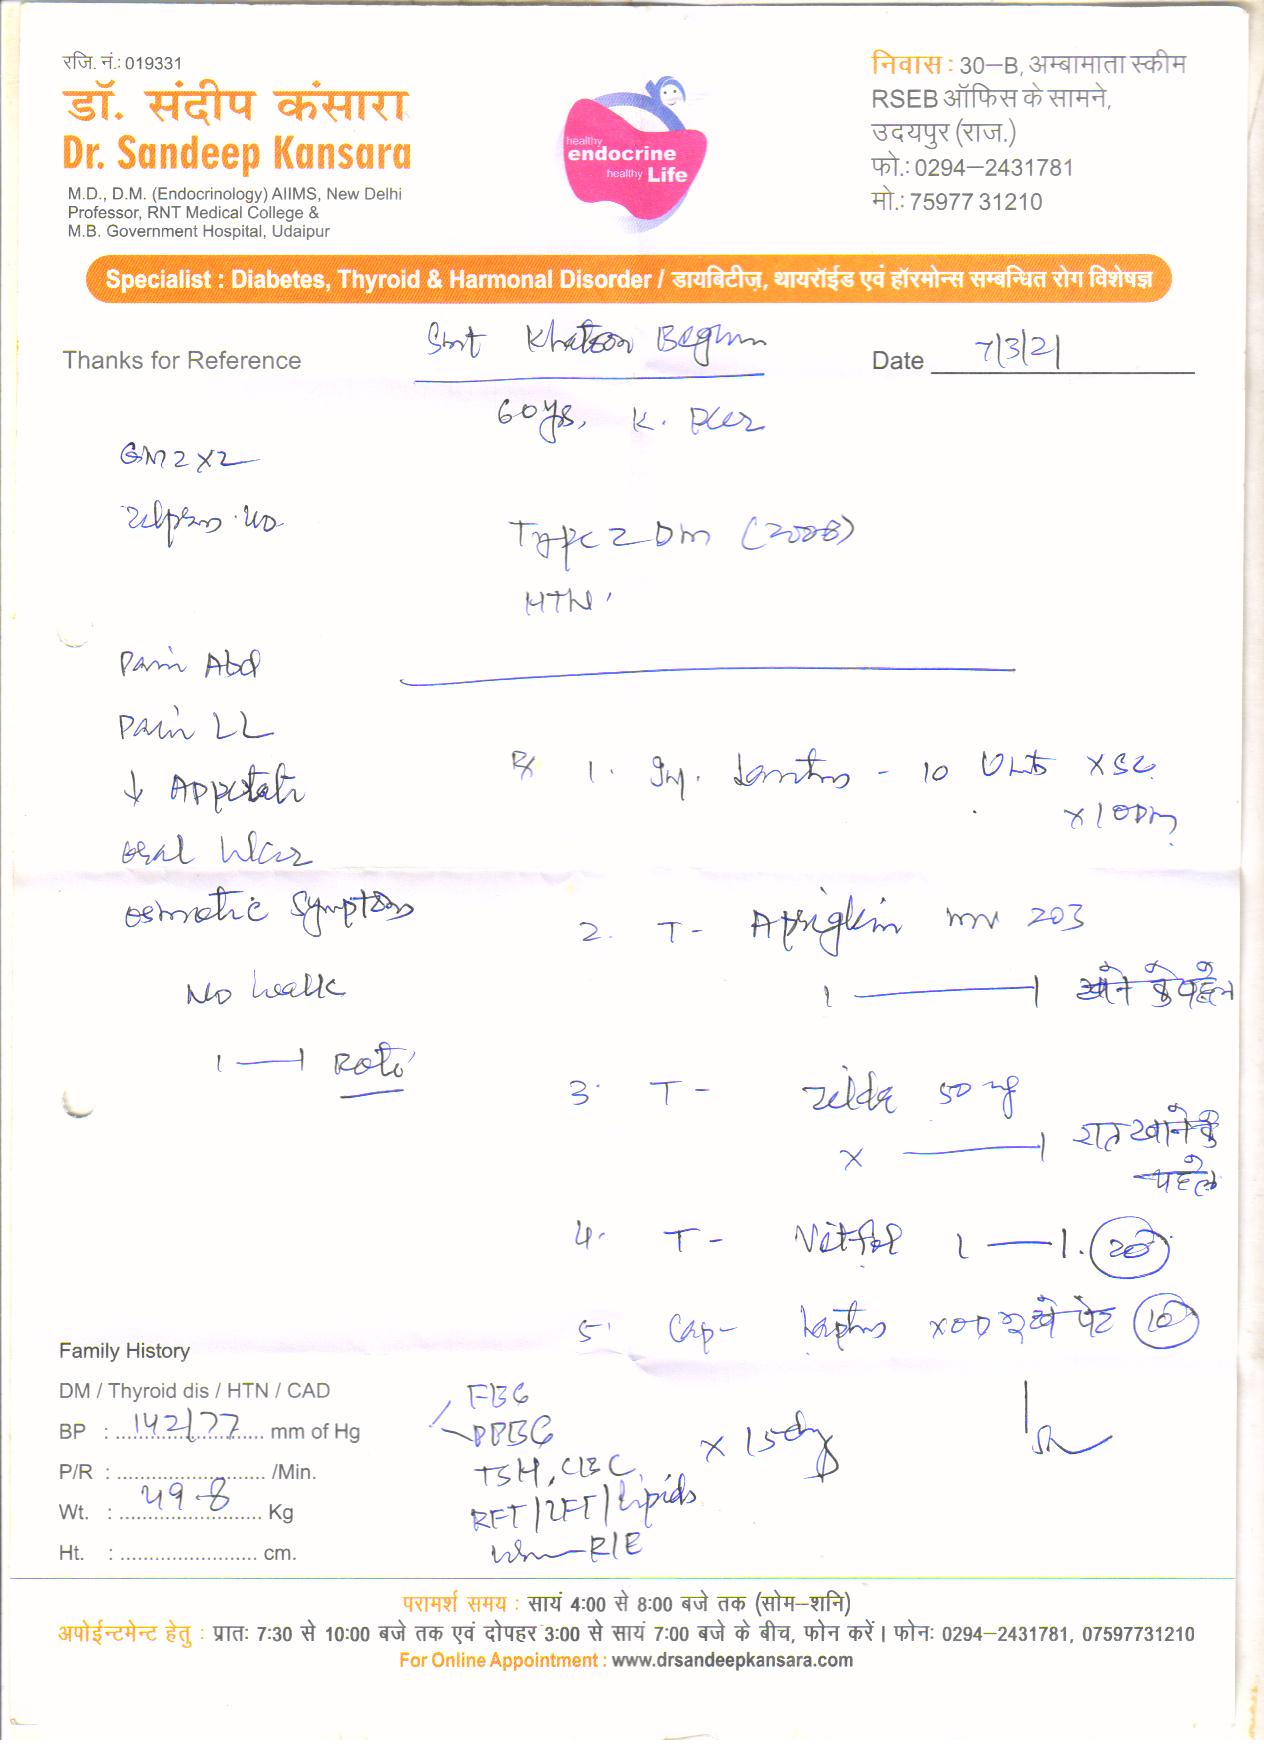 रजि. नं.: 019331
डॉ. संदीप कंसारा
Dr. Sandeep Kansara
M.D., D.M. (Endocrinology) AIIMS, New Delhi
Professor, RNT Medical College &
M.B. Government Hospital, Udaipur
healthy
endocrine
healthy Life
निवास : 30–B, अम्बामाता स्कीम
RSEB ऑफिस के सामने,
उदयपुर (राज.)
फो.: 0294–2431781
मो.: 75977 31210
Specialist : Diabetes, Thyroid & Harmonal Disorder / डायबिटीज़, थायरॉईड एवं हॉरमोन्स सम्बन्धित रोग विशेषज्ञ
Thanks for Reference
Smt Khatoon Begum
Date 7/3/21
60 ys, K.
GM2 X2
Type 2 DM (2008)
HTN
Pain Abd
Pain LL
↓ Appetate
oral ulcer
osmotic symptoms
No walk
1 — 1 Roti
Rx 1. Inj. Lantus - 10 Units X SC
2. T- MV 203
1 — 1 खाने के पहले
3. T- 50 mg
X — 1 रात खाने के
पहले
4. T- 1 — 1. 20
5. Cap- X OD भूखे पेट 10
Family History
DM / Thyroid dis / HTN / CAD
BP : 142/77 mm of Hg
P/R : /Min.
Wt. : 49.8 Kg
Ht. : cm.
FBG
PPBG
TSH, CBC
RFT / LFT / Lipids
R/E
X 15 day
परामर्श समय : सायं 4:00 से 8:00 बजे तक (सोम–शनि)
अपोईन्टमेन्ट हेतु : प्रातः 7:30 से 10:00 बजे तक एवं दोपहर 3:00 से सायं 7:00 बजे के बीच, फोन करें। फोनः 0294–2431781, 07597731210
For Online Appointment : www.drsandeepkansara.com